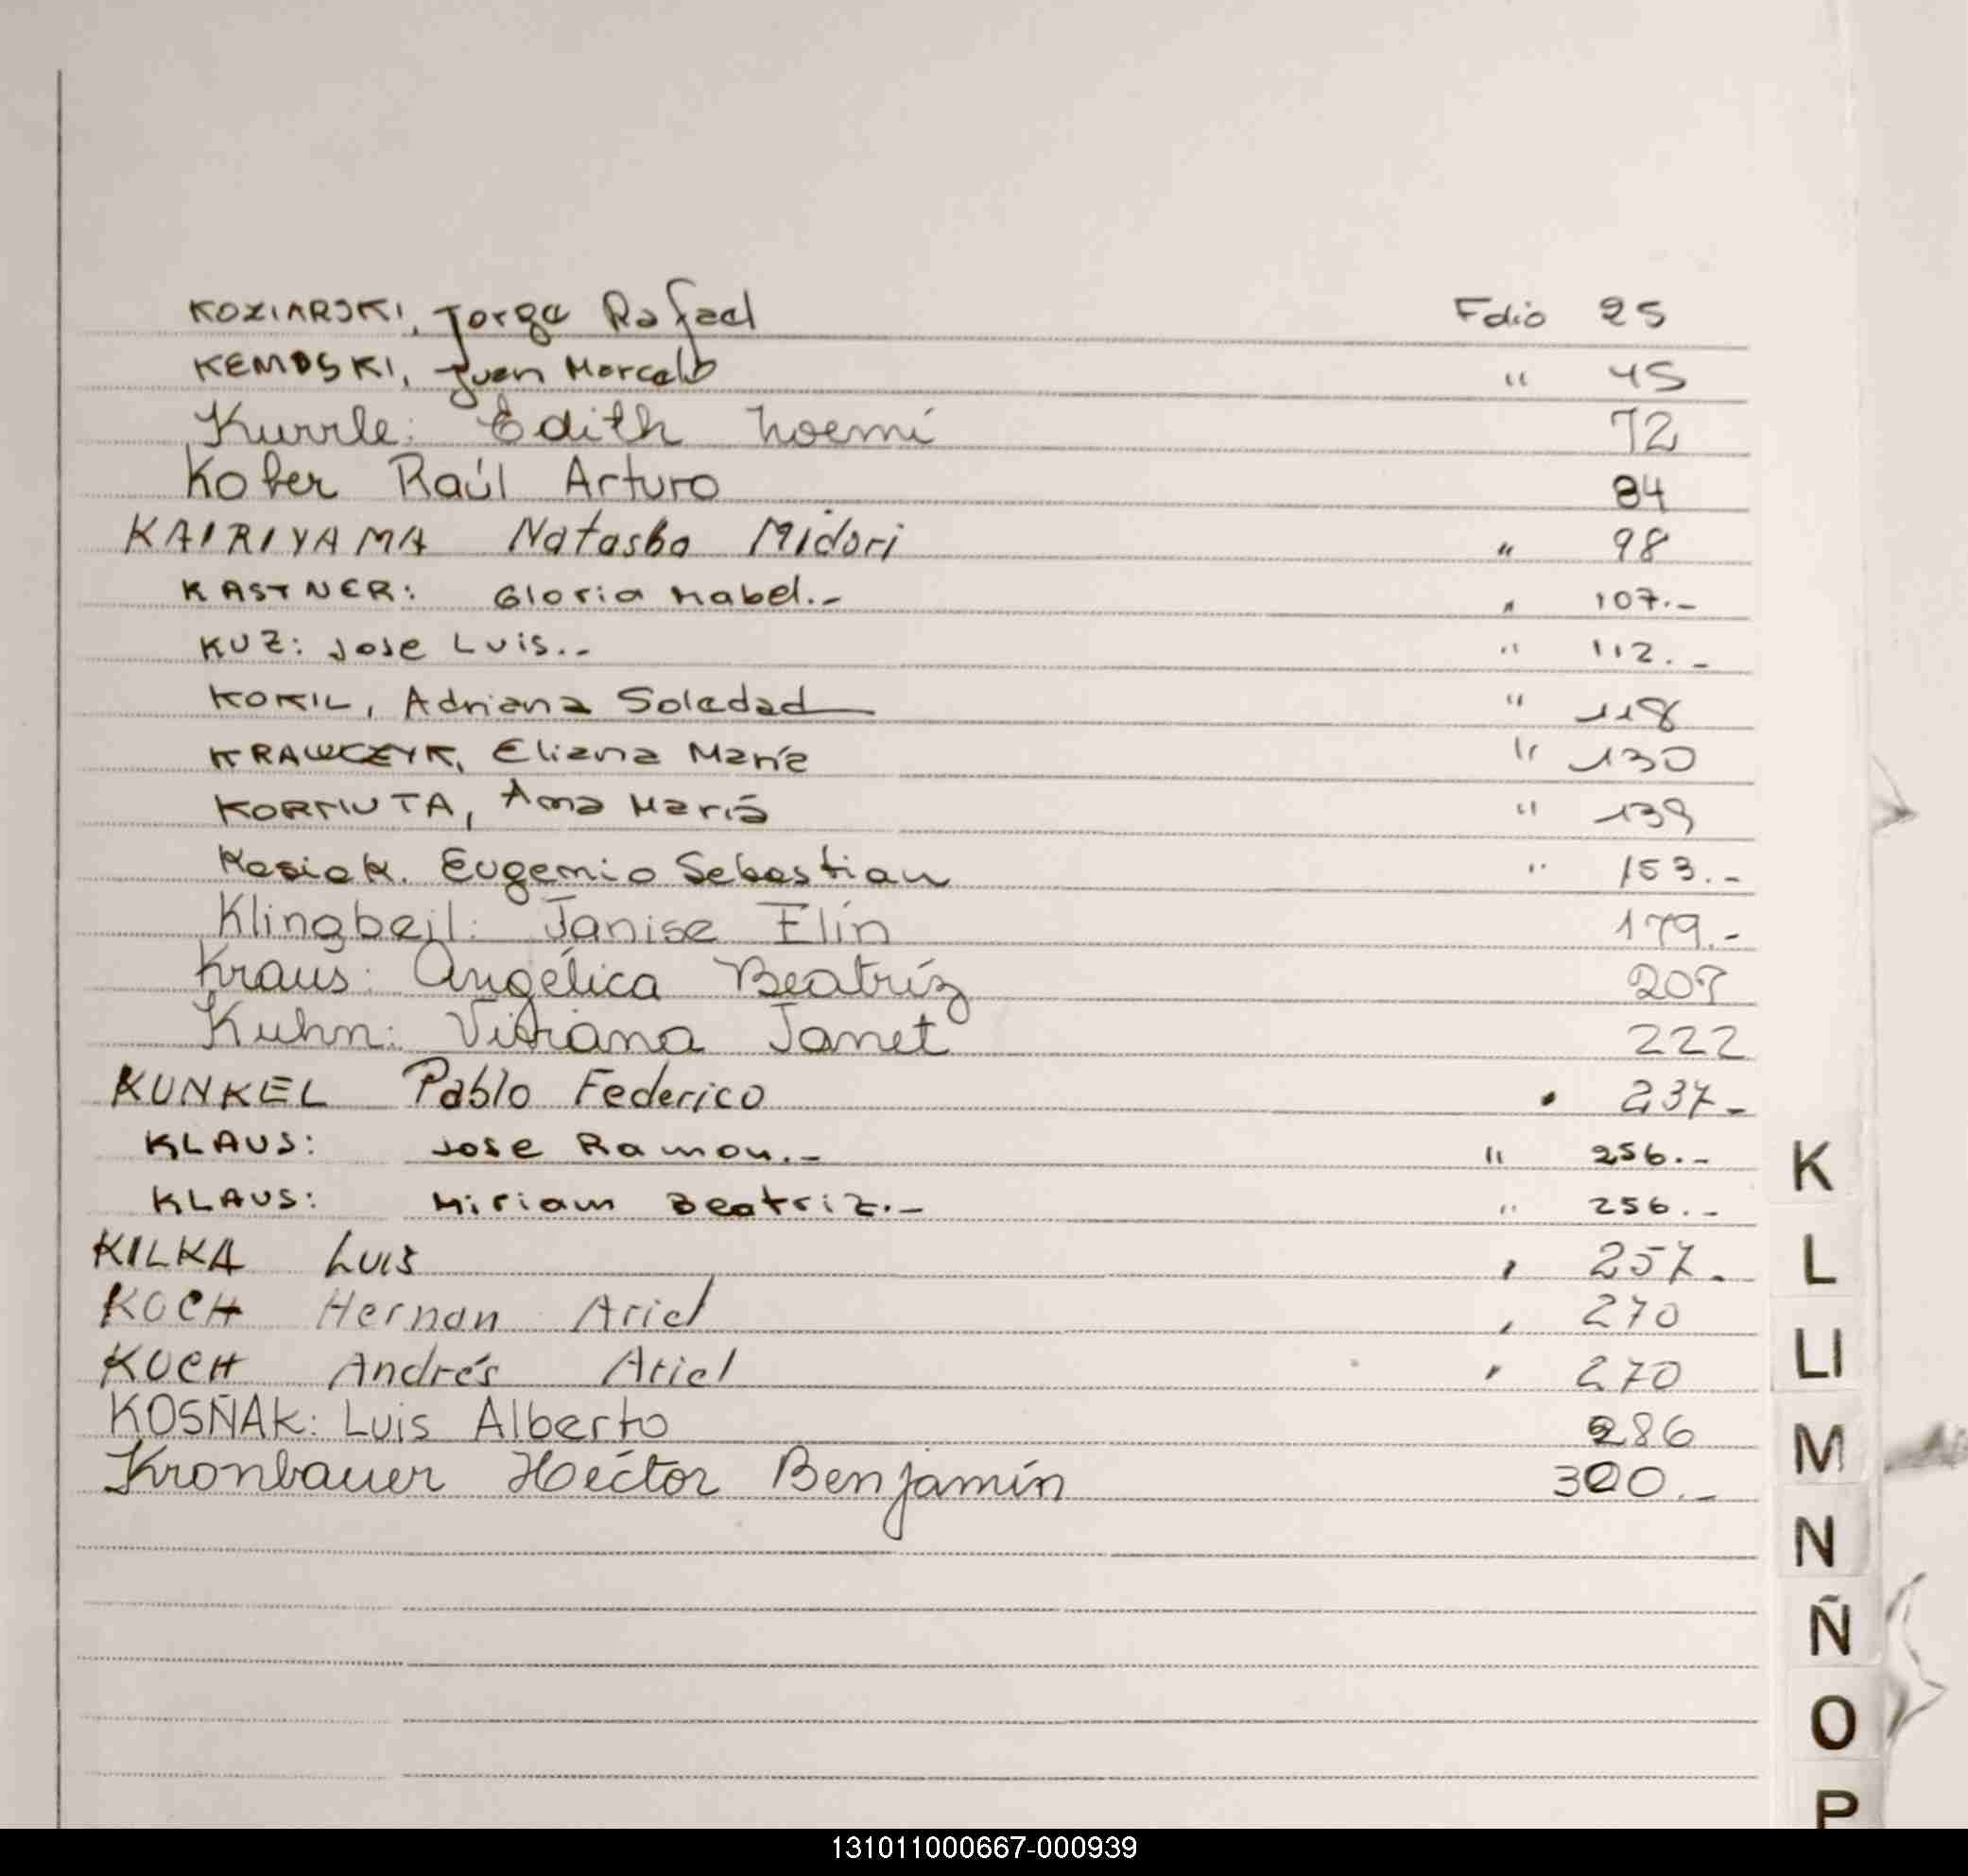 KOZIARSKI, Jorge Rafael Folio 25
KEMOSKI, Juan Marcelo " 45
Kurrle: Edith Noemí 72
Kober Raúl Arturo 84
KAIRIYAMA Natasba Midori " 98
KASTNER: Gloria Mabel.- " 107.-
KUZ: Jose Luis.- " 112.-
KOKIL, Adriana Soledad " 118
KRAWCZYK, Eliana María " 130
KORMUTA, Ana Mariá " 139
Kosiak. Eugenio Sebastian " 153.-
Klingbeil: Janise Elín 179.-
Kraus: Angélica Beatríz 207
Kuhn: Viviana Janet 222
KUNKEL Pablo Federico " 237-
KLAUS: Jose Ramon.- " 256.-
KLAUS: Miriam Beatriz.- " 256.-
KILKA Luis " 257.
KOCH Hernan Ariel " 270
KOCH Andrés Ariel " 270
KOSÑAK: Luis Alberto 286
Kronbauer Héctor Benjamín 300.-
K
L
Ll
M
N
Ñ
O
P
131011000667-000939